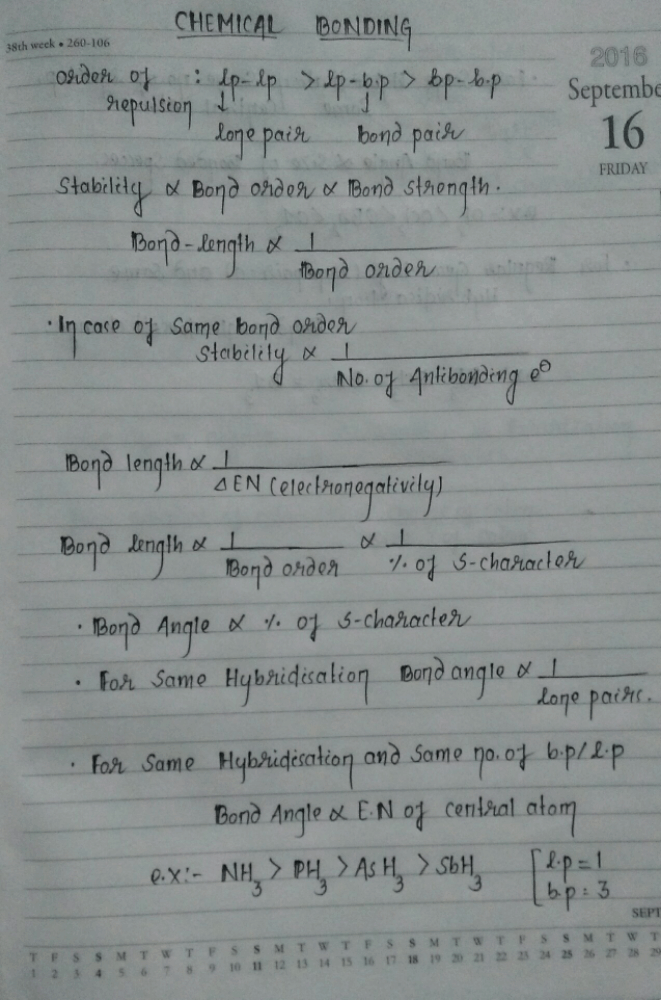 CHEMICAL BONDING
38th week • 260-106
2016
September
16
FRIDAY
order of : lp-lp > lp-b.p > bp-b.p
repulsion ↓ ↓
lone pair bond pair
Stability ∝ Bond order ∝ Bond strength.
Bond-length ∝ 1
Bond order
• In case of same bond order
Stability ∝ 1
No. of Antibonding e⊖
Bond length ∝ 1
Δ EN (electronegativity)
Bond length ∝ 1 ∝ 1
Bond order % of S-character
• Bond Angle ∝ % of S-character
• For Same Hybridisation Bond angle ∝ 1
lone pairs.
• For Same Hybridisation and same no. of b.p/l.p
Bond Angle ∝ E.N of central atom
e.x:- NH3 > PH3 > AsH3 > SbH3 [l.p = 1
b.p = 3
SEPT
T F S S M T W T F S S M T W T F S S M T W T F S S M T W T
1 2 3 4 5 6 7 8 9 10 11 12 13 14 15 16 17 18 19 20 21 22 23 24 25 26 27 28 29